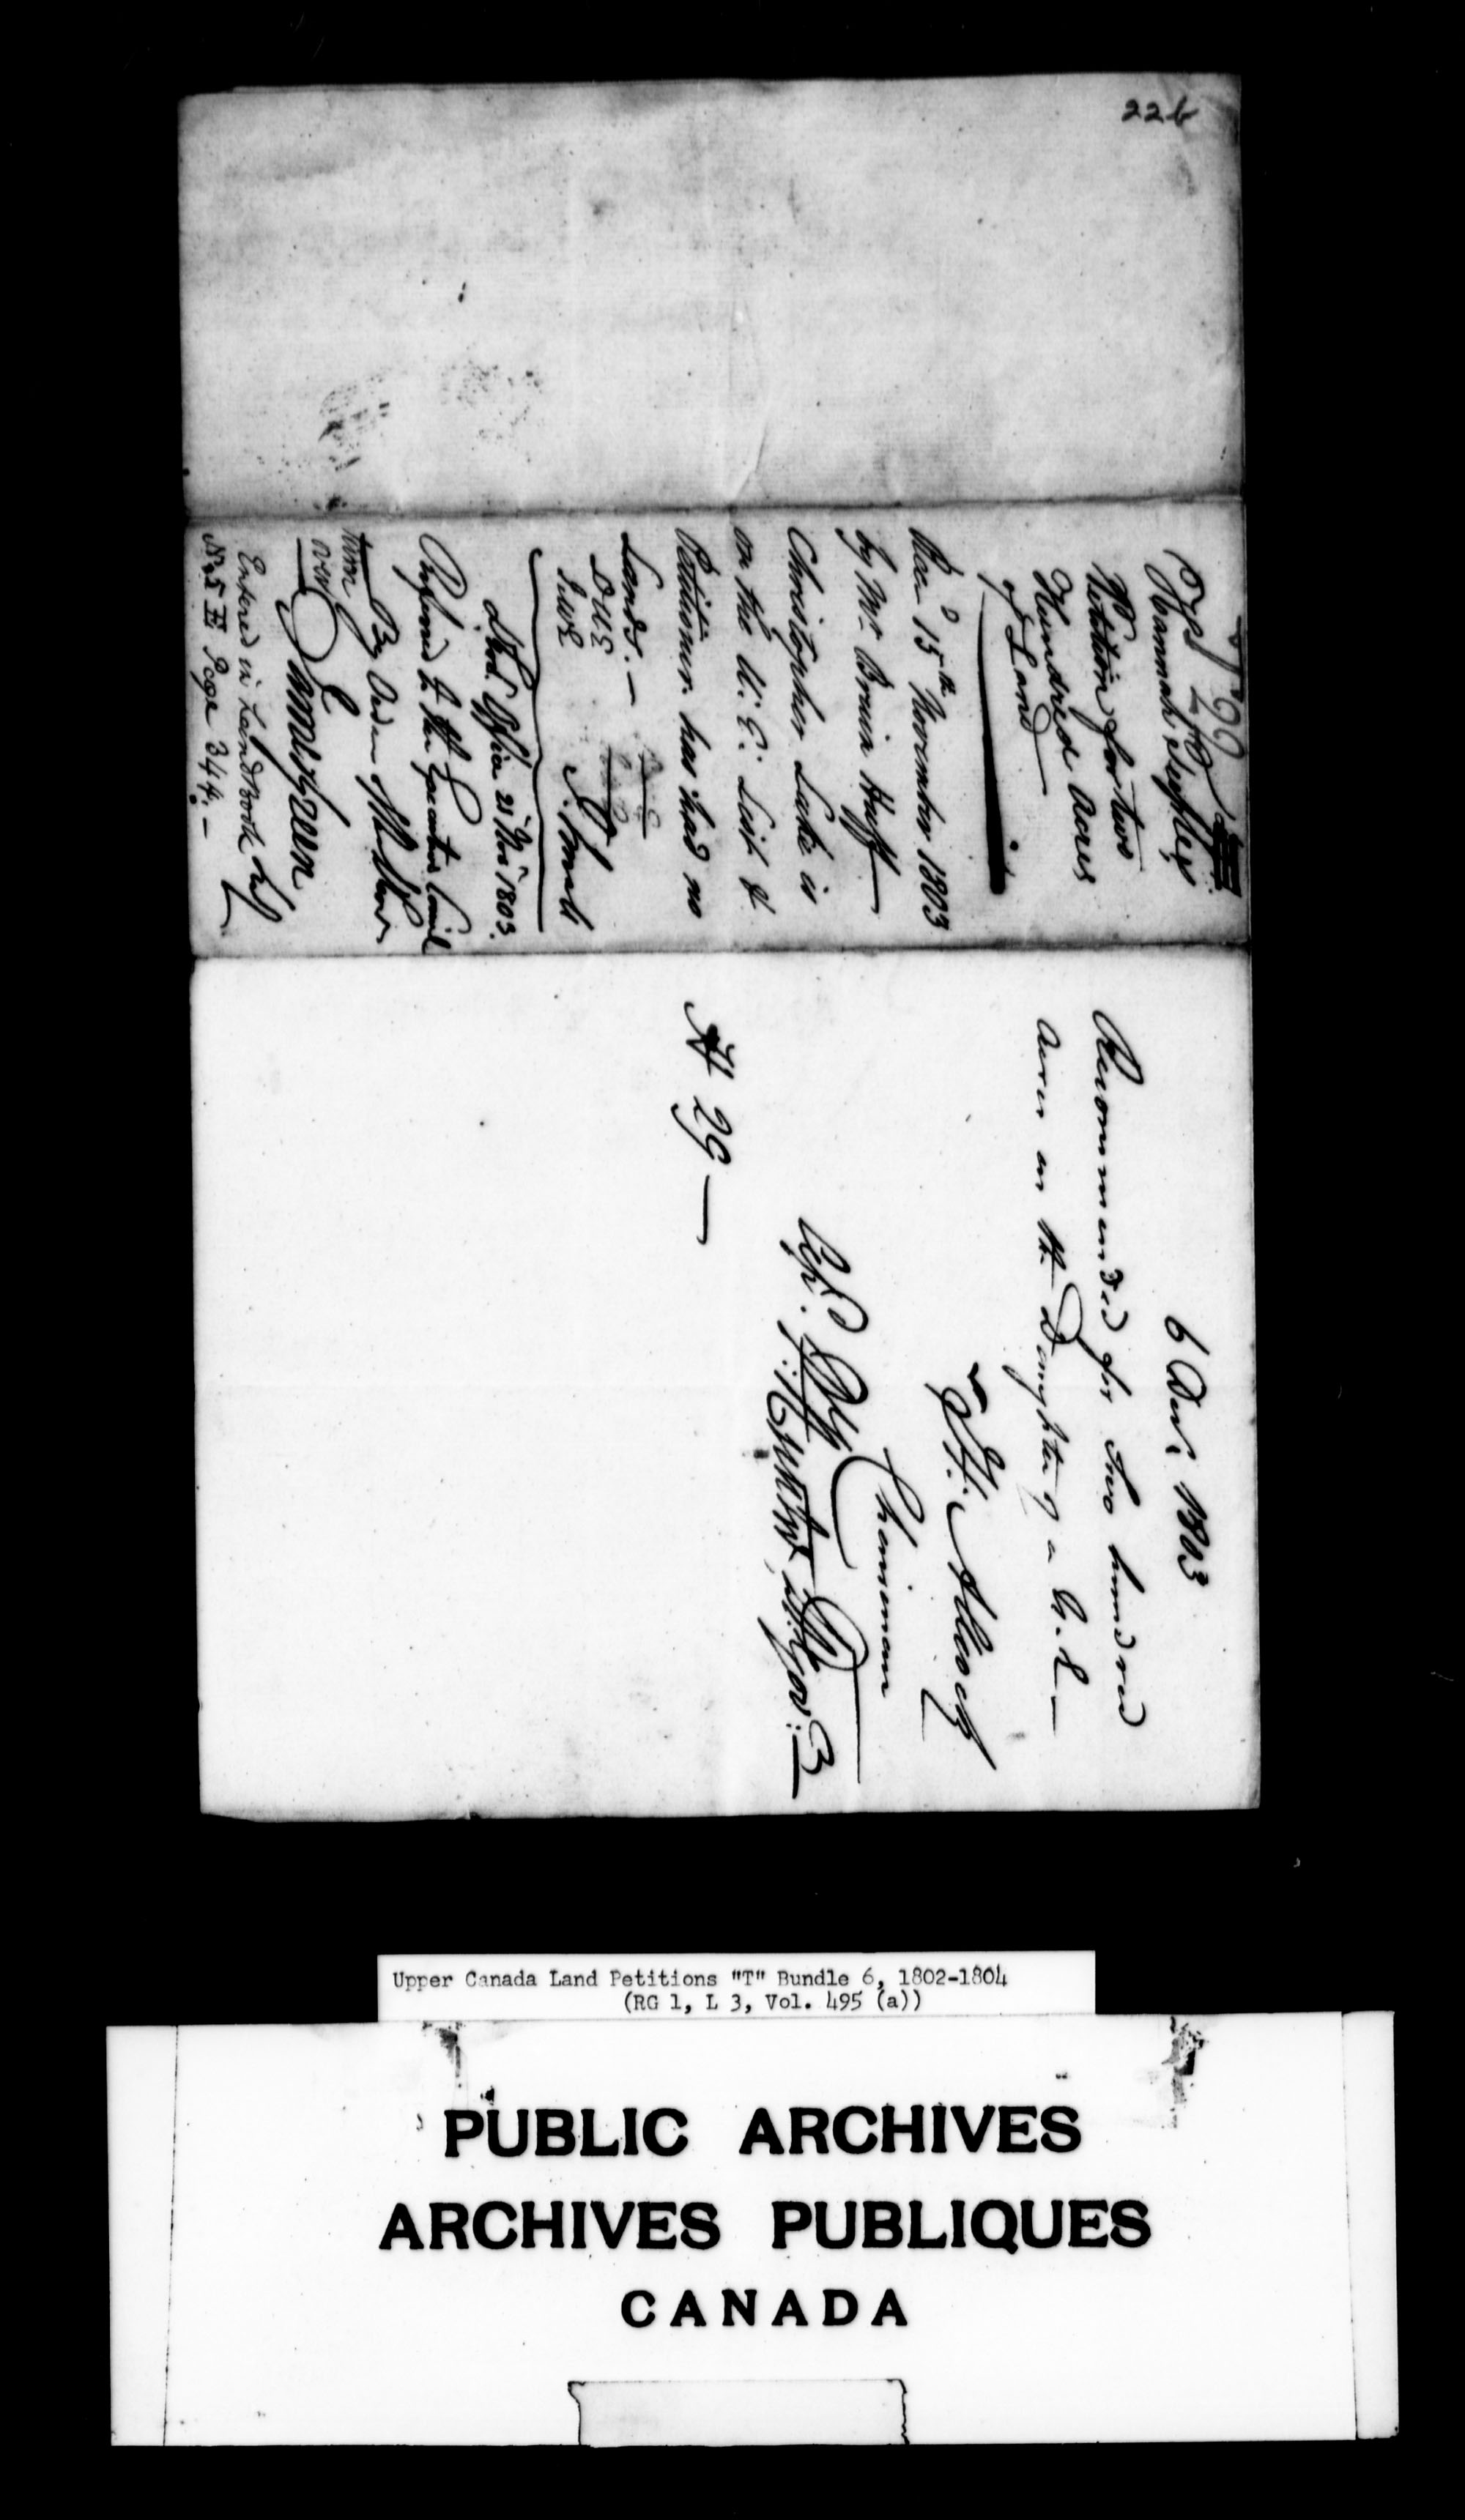 226
Hannah
Petition for two
Hundred Acres
of Land
Recd 15th November 1803
by Mr Bruin Huff
Christopher Lake is
on the U.E. List &
Petitioner has had no
Lands.—
DWS
Lieut. Govr's Office 21 Nov 1803.
Referred to the Executive Council
By Order of the
Jams Green
Entered in Land Book
No 5 E Page 344.—
6 Decr 1803
Recommended for Two hundred
Acres as the Daughter of a U.E—
H. Allcock
Chairman
P. Hunter Lt: Gov:
A 29—
Upper Canada Land Petitions "T" Bundle 6, 1802-1804
(RG 1, L 3, Vol. 495 (a))
PUBLIC ARCHIVES
ARCHIVES PUBLIQUES
CANADA